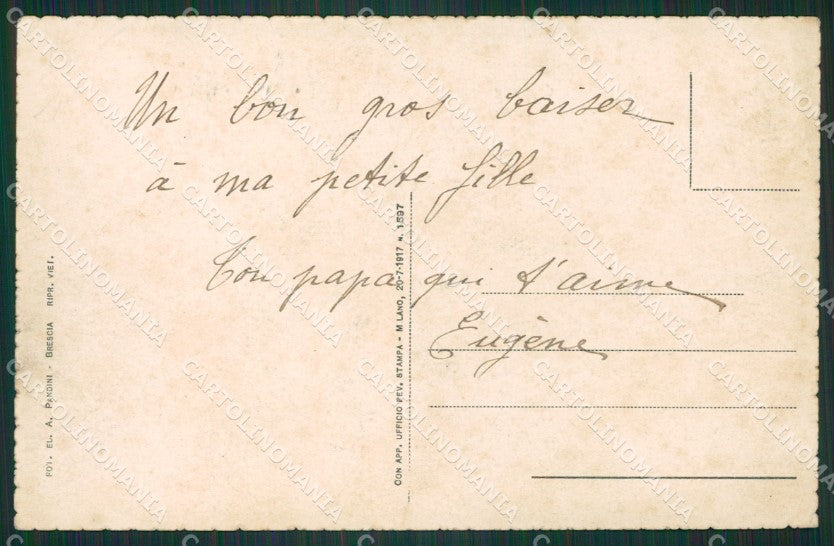 Un bon gros baiser
à ma petite fille
Ton papa qui t'aime
Eugène
CON APP. UFFICIO REV. STAMPA - MILANO, 20-7-1917 N. 1597
FOT. EL. A. PANDINI - BRESCIA RIPR. VIET.
CARTOLINOMANIA